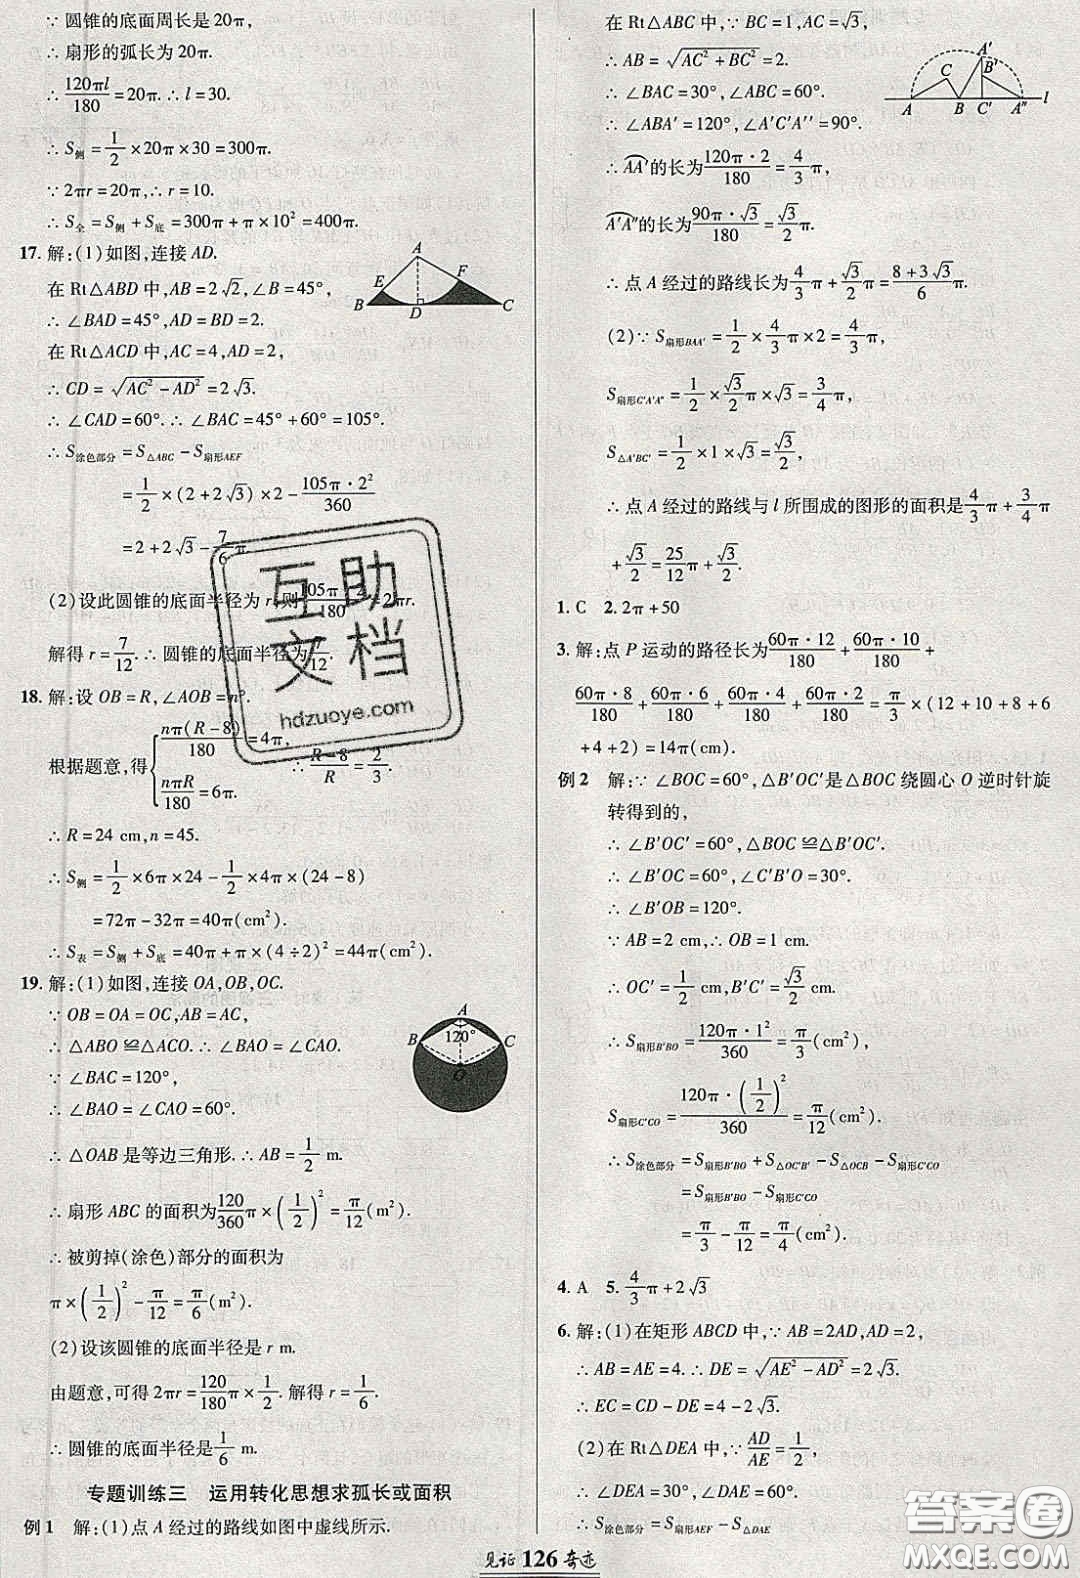 ∵圆锥的底面周长是20π,
∴扇形的弧长为20π.
∴120πl/180=20π.∴l=30.
∴S侧=1/2×20π×30=300π.
∵2πr=20π,∴r=10.
∴S全=S侧+S底=300π+π×10²=400π.
17.解:(1)如图,连接AD.
在Rt△ABD中,AB=2√2,∠B=45°,
∴∠BAD=45°,AD=BD=2.
在Rt△ACD中,AC=4,AD=2,
∴CD=√(AC²-AD²)=2√3.
∴∠CAD=60°.∴∠BAC=45°+60°=105°.
∴S涂色部分=S△ABC-S扇形AEF
=1/2×(2+2√3)×2-105π·2²/360
=2+2√3-7/6π.
(2)设此圆锥的底面半径为r,则105π·2/180=2πr.
解得r=7/12.∴圆锥的底面半径为7/12.
A
E
F
B
D
C
18.解:设OB=R,∠AOB=n°.
根据题意,得{nπ(R-8)/180=4π, nπR/180=6π. ∴R-8/R=2/3.
∴R=24 cm,n=45.
∴S侧=1/2×6π×24-1/2×4π×(24-8)
=72π-32π=40π(cm²).
∴S表=S侧+S底=40π+π×(4÷2)²=44π(cm²).
19.解:(1)如图,连接OA,OB,OC.
∵OB=OA=OC,AB=AC,
∴△ABO≌△ACO.∴∠BAO=∠CAO.
∵∠BAC=120°,
∴∠BAO=∠CAO=60°.
∴△OAB是等边三角形.∴AB=1/2 m.
∴扇形ABC的面积为120/360π×(1/2)²=π/12(m²).
∴被剪掉(涂色)部分的面积为
π×(1/2)²-π/12=π/6(m²).
(2)设该圆锥的底面半径是r m.
由题意,可得2πr=120/180π×1/2.解得r=1/6.
∴圆锥的底面半径是1/6 m.
A
B
120°
C
O
专题训练三 运用转化思想求弧长或面积
例1 解:(1)点A经过的路线如图中虚线所示.
在Rt△ABC中,∵BC=1,AC=√3,
∴AB=√(AC²+BC²)=2.
∴∠BAC=30°,∠ABC=60°.
∴∠ABA′=120°,∠A′C′A″=90°.
∴AA′的长为120π·2/180=4/3π,
A′A″的长为90π·√3/180=√3/2π.
∴点A经过的路线长为4/3π+√3/2π=8+3√3/6π.
A′
C
B′
A
B
C′
A″
l
(2)∵S扇形BAA′=1/2×4/3π×2=4/3π,
S扇形C′A′A″=1/2×√3/2π×√3=3/4π,
S△A′BC′=1/2×1×√3=√3/2,
∴点A经过的路线与l所围成的图形的面积是4/3π+3/4π
+√3/2=25/12π+√3/2.
1.C 2.2π+50
3.解:点P运动的路径长为60π·12/180+60π·10/180+
60π·8/180+60π·6/180+60π·4/180+60π·2/180=π/3×(12+10+8+6
+4+2)=14π(cm).
例2 解:∵∠BOC=60°,△B′OC′是△BOC绕圆心O逆时针旋
转得到的,
∴∠B′OC′=60°,△BOC≌△B′OC′.
∴∠B′OC=60°,∠C′B′O=30°.
∴∠B′OB=120°.
∵AB=2 cm,∴OB=1 cm.
∴OC′=1/2,B′C′=√3/2.
∴S扇形B′BO=120π·1²/360=π/3(cm²),
S扇形C′CO=120π·(1/2)²/360=π/12(cm²).
∴S涂色部分=S扇形B′BO+S△OC′B′-S△OCB-S扇形C′CO
=S扇形B′BO-S扇形C′CO
=π/3-π/12=π/4(cm²).
4.A 5.4/3π+2√3
6.解:(1)在矩形ABCD中,∵AB=2AD,AD=2,
∴AB=AE=4.∴DE=√(AE²-AD²)=2√3.
∴EC=CD-DE=4-2√3.
(2)在Rt△DEA中,∵AD/AE=1/2,
∴∠DEA=30°.∴∠EAB=30°.
∴S涂色部分=S扇形AEF-S△DAE
见证126奇迹
互助
文档
hdzuoye.com
答案圈
MXQE.COM